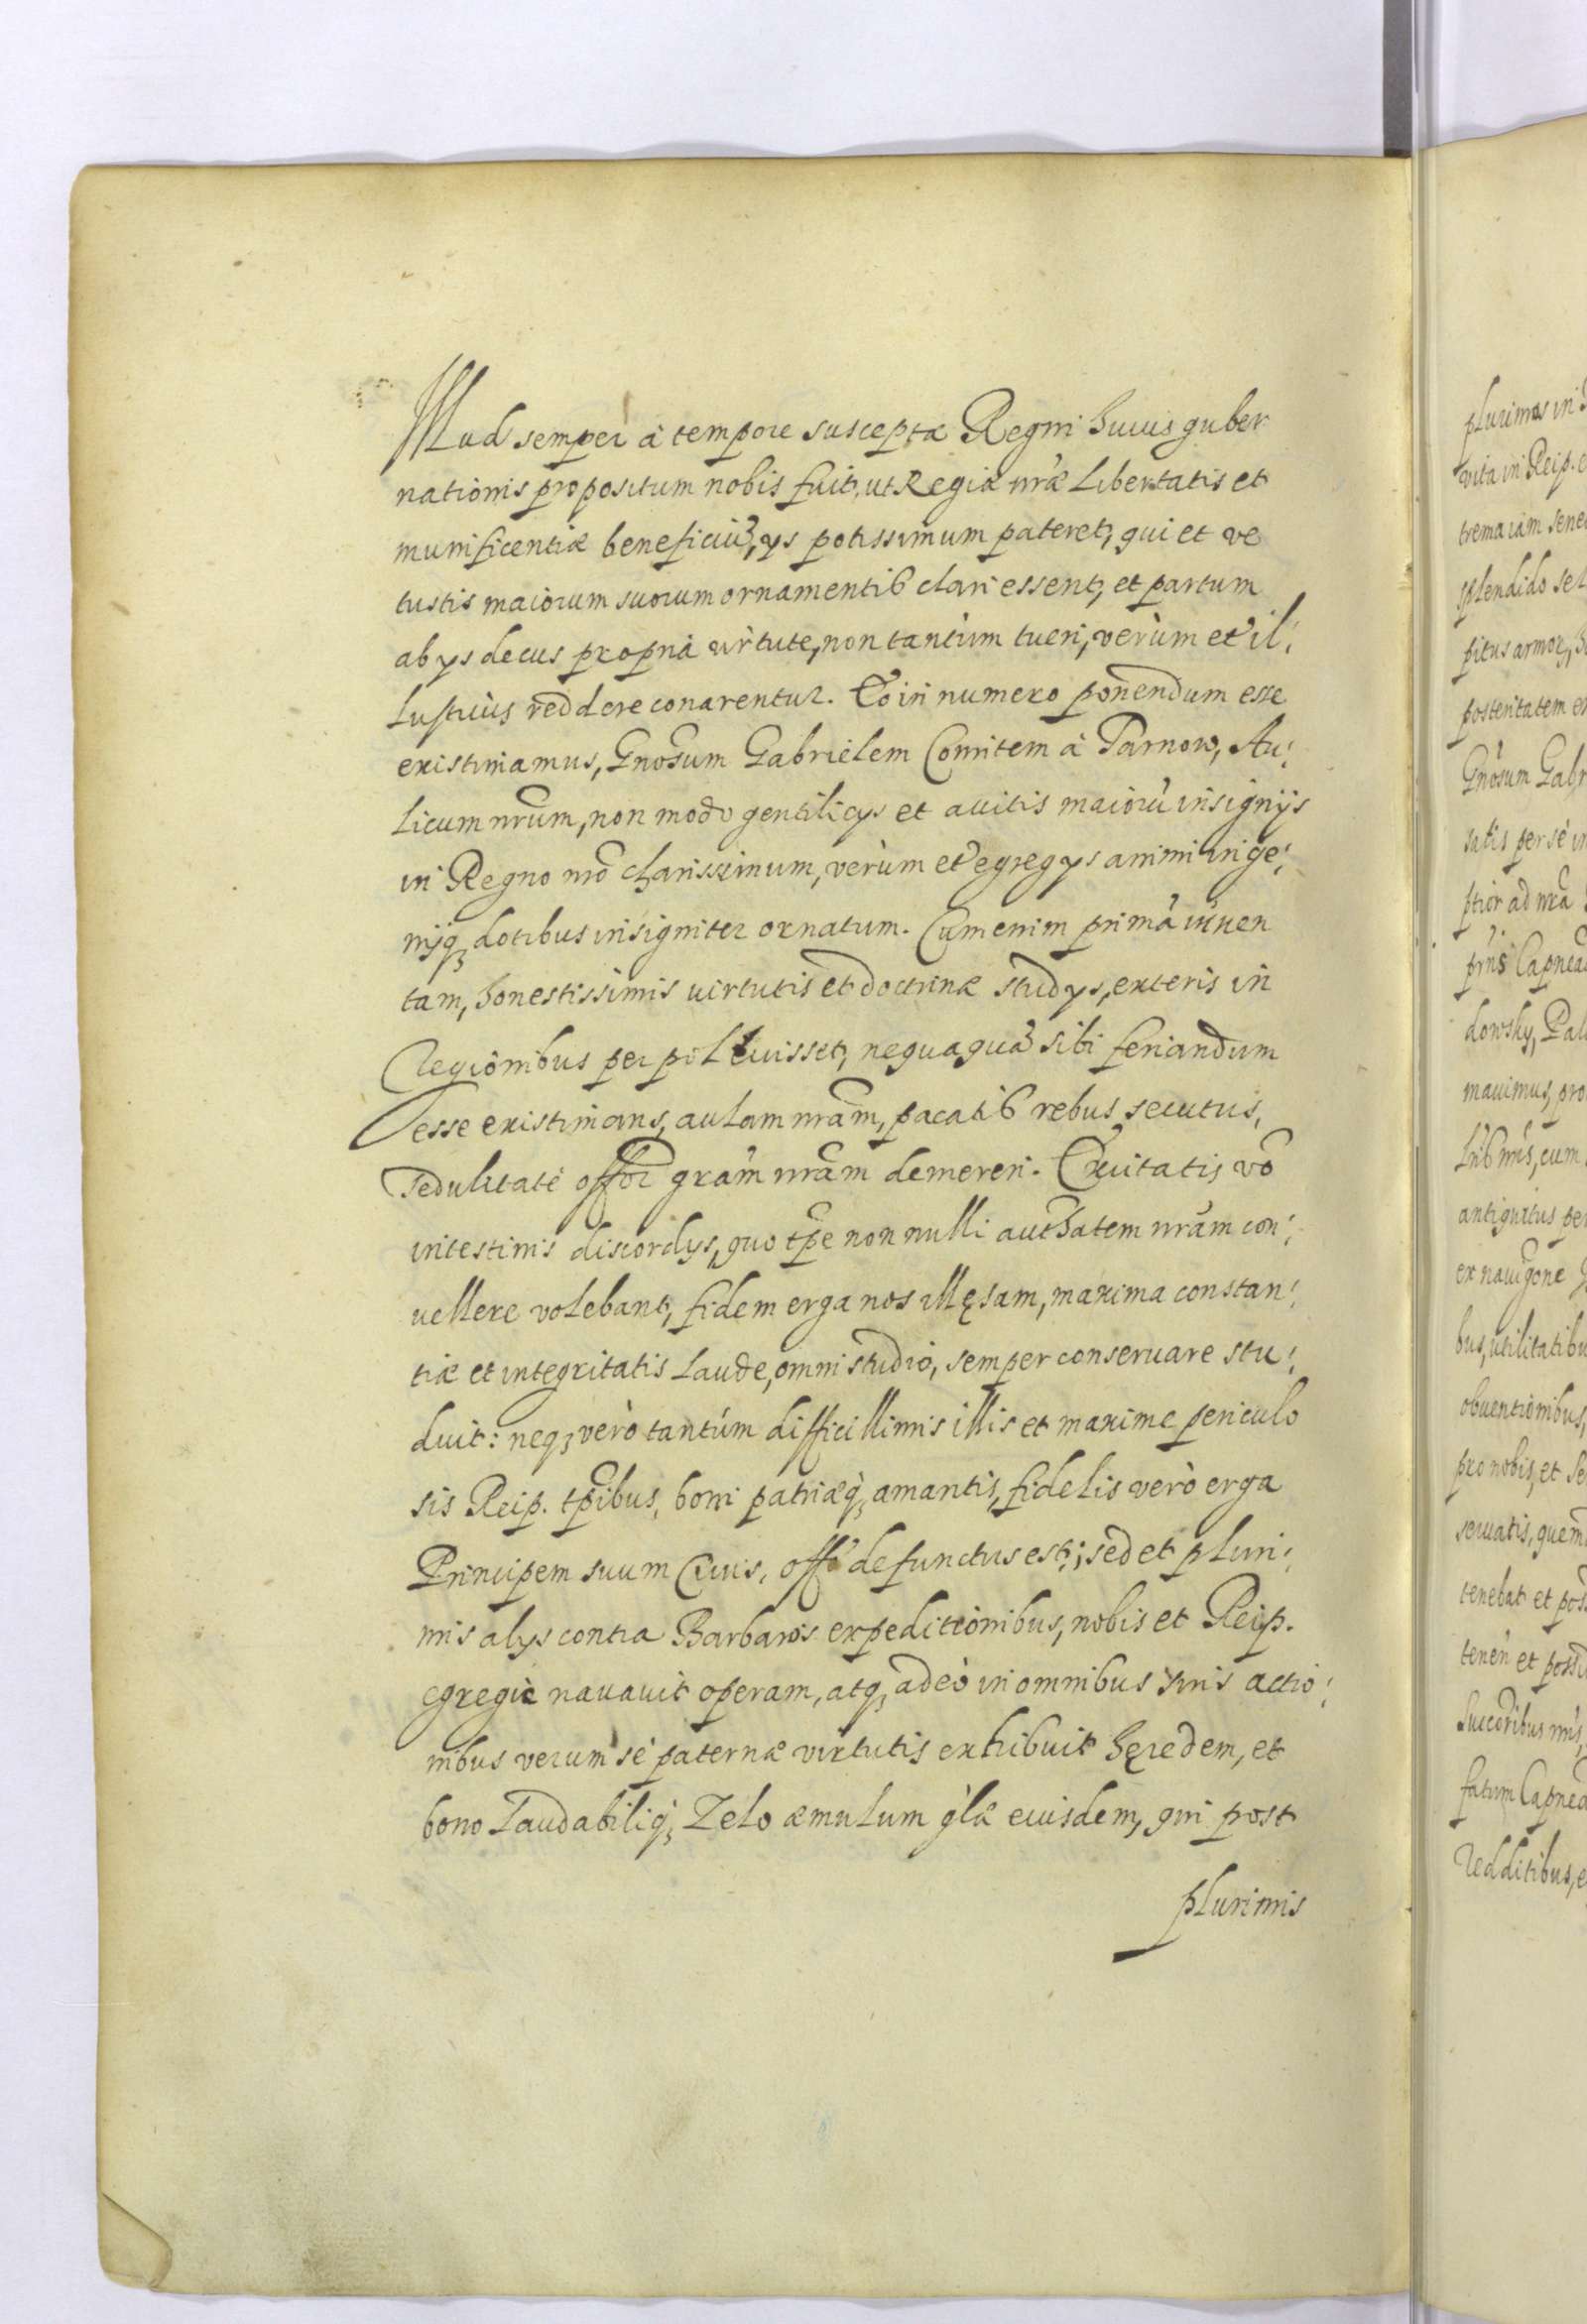 Illud semper à tempore susceptæ Regni huius guber
nationis propositum nobis fuit, ut Regiæ nr̃æ Libertatis et
munificentiæ beneficiũ, ys potissimum pateret, qui et ve
tustis maiorum suorum ornamentib clari essent, et partum
ab ys decus propriâ virtute, non tantùm tueri, verùm et il:
lustriùs reddere conarentur. Eo in numero ponendum esse
existimamus, Gnosum Gabrielem Comitem à Tarnow, Au:
licum nr̃um, non modo gentilicys et auitis maiorũ insignijs
in Regno nr̃o charissimum, verùm et egregys animi inge:
nijq; dotibus insigniter ornatum. Cum enim primã iuuen
tam, honestissimis uirtutis et doctrinæ studys, exteris in
Regionibus per poliuisset, nequaquã sibi feriandum
esse existimans, aulam nr̃am, pacatib rebus secutus,
sedulitate offor grãm nr̃am demereri. Exuitatis võ
intestinis discordys, quo tp̃e non nulli authatem nr̃am con:
uellere volebant, fidem erga nos illęsam, maxima constan:
tiæ et integritatis laude, omni studio, semper conseruare stu:
duit: neq; verò tantúm difficillimis illis et maxime periculo
sis Reip. tp̃ibus, boni patriæq; amantis, fidelis verò erga
Principem suum Ciuis, offo defunctus est; sed et pluri:
mis alys contra Barbaros expeditionibus, nobis et Reip.
egregie nauauit operam, atq; adeò in omnibus suis actio:
nibus verum sé paternæ virtutis exhibuit hęredem, et
bono laudabiliq; Zelo æmulum glæ eiusdem, qui post
plurimis
plurimos in
vita in Reip.
trema iam sene
splendido se
pitus armor,
posteritatem
Gnosum Gabr
satis per sé in
ptior ad nr̃a
pms Capnea
dowsky, Pal
mauimus, pro
lrib nr̃is, cum
antiquitus pe
ex nauigone
bus, utilitatibu
obuentionibus,
pro nobis, et
seruatis, quem
tenebat et pos
tenen et possi
Succoribus nr̃is,
fatum Capnea
Redditibus, e